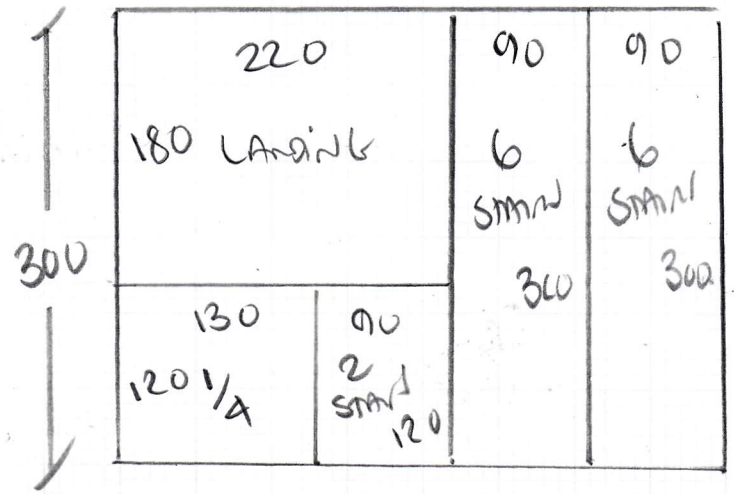 220
180 LANDING
90
6
STAIR
300
90
6
STAIR
300
300
130
120 1/4
90
2
STAIR
120